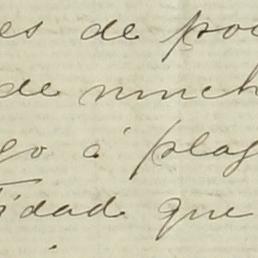 es de poc
de much
go á plag
tidad que